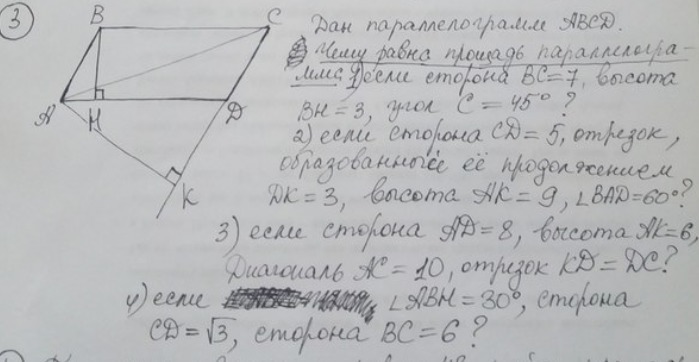 3
B
C
A
H
D
K
Дан параллелограмм ABCD.
Чему равна площадь параллелогра-
мма 1) если сторона BC=7, высота
BH=3, угол C=45°?
2) если сторона CD=5, отрезок,
образованный её продолжением
DK=3, высота AK=9, ∠BAD=60°?
3) если сторона AD=8, высота AK=6,
Диагональ AC=10, отрезок KD=DC?
4) если ∠ABH=30°, сторона
CD=√3, сторона BC=6?